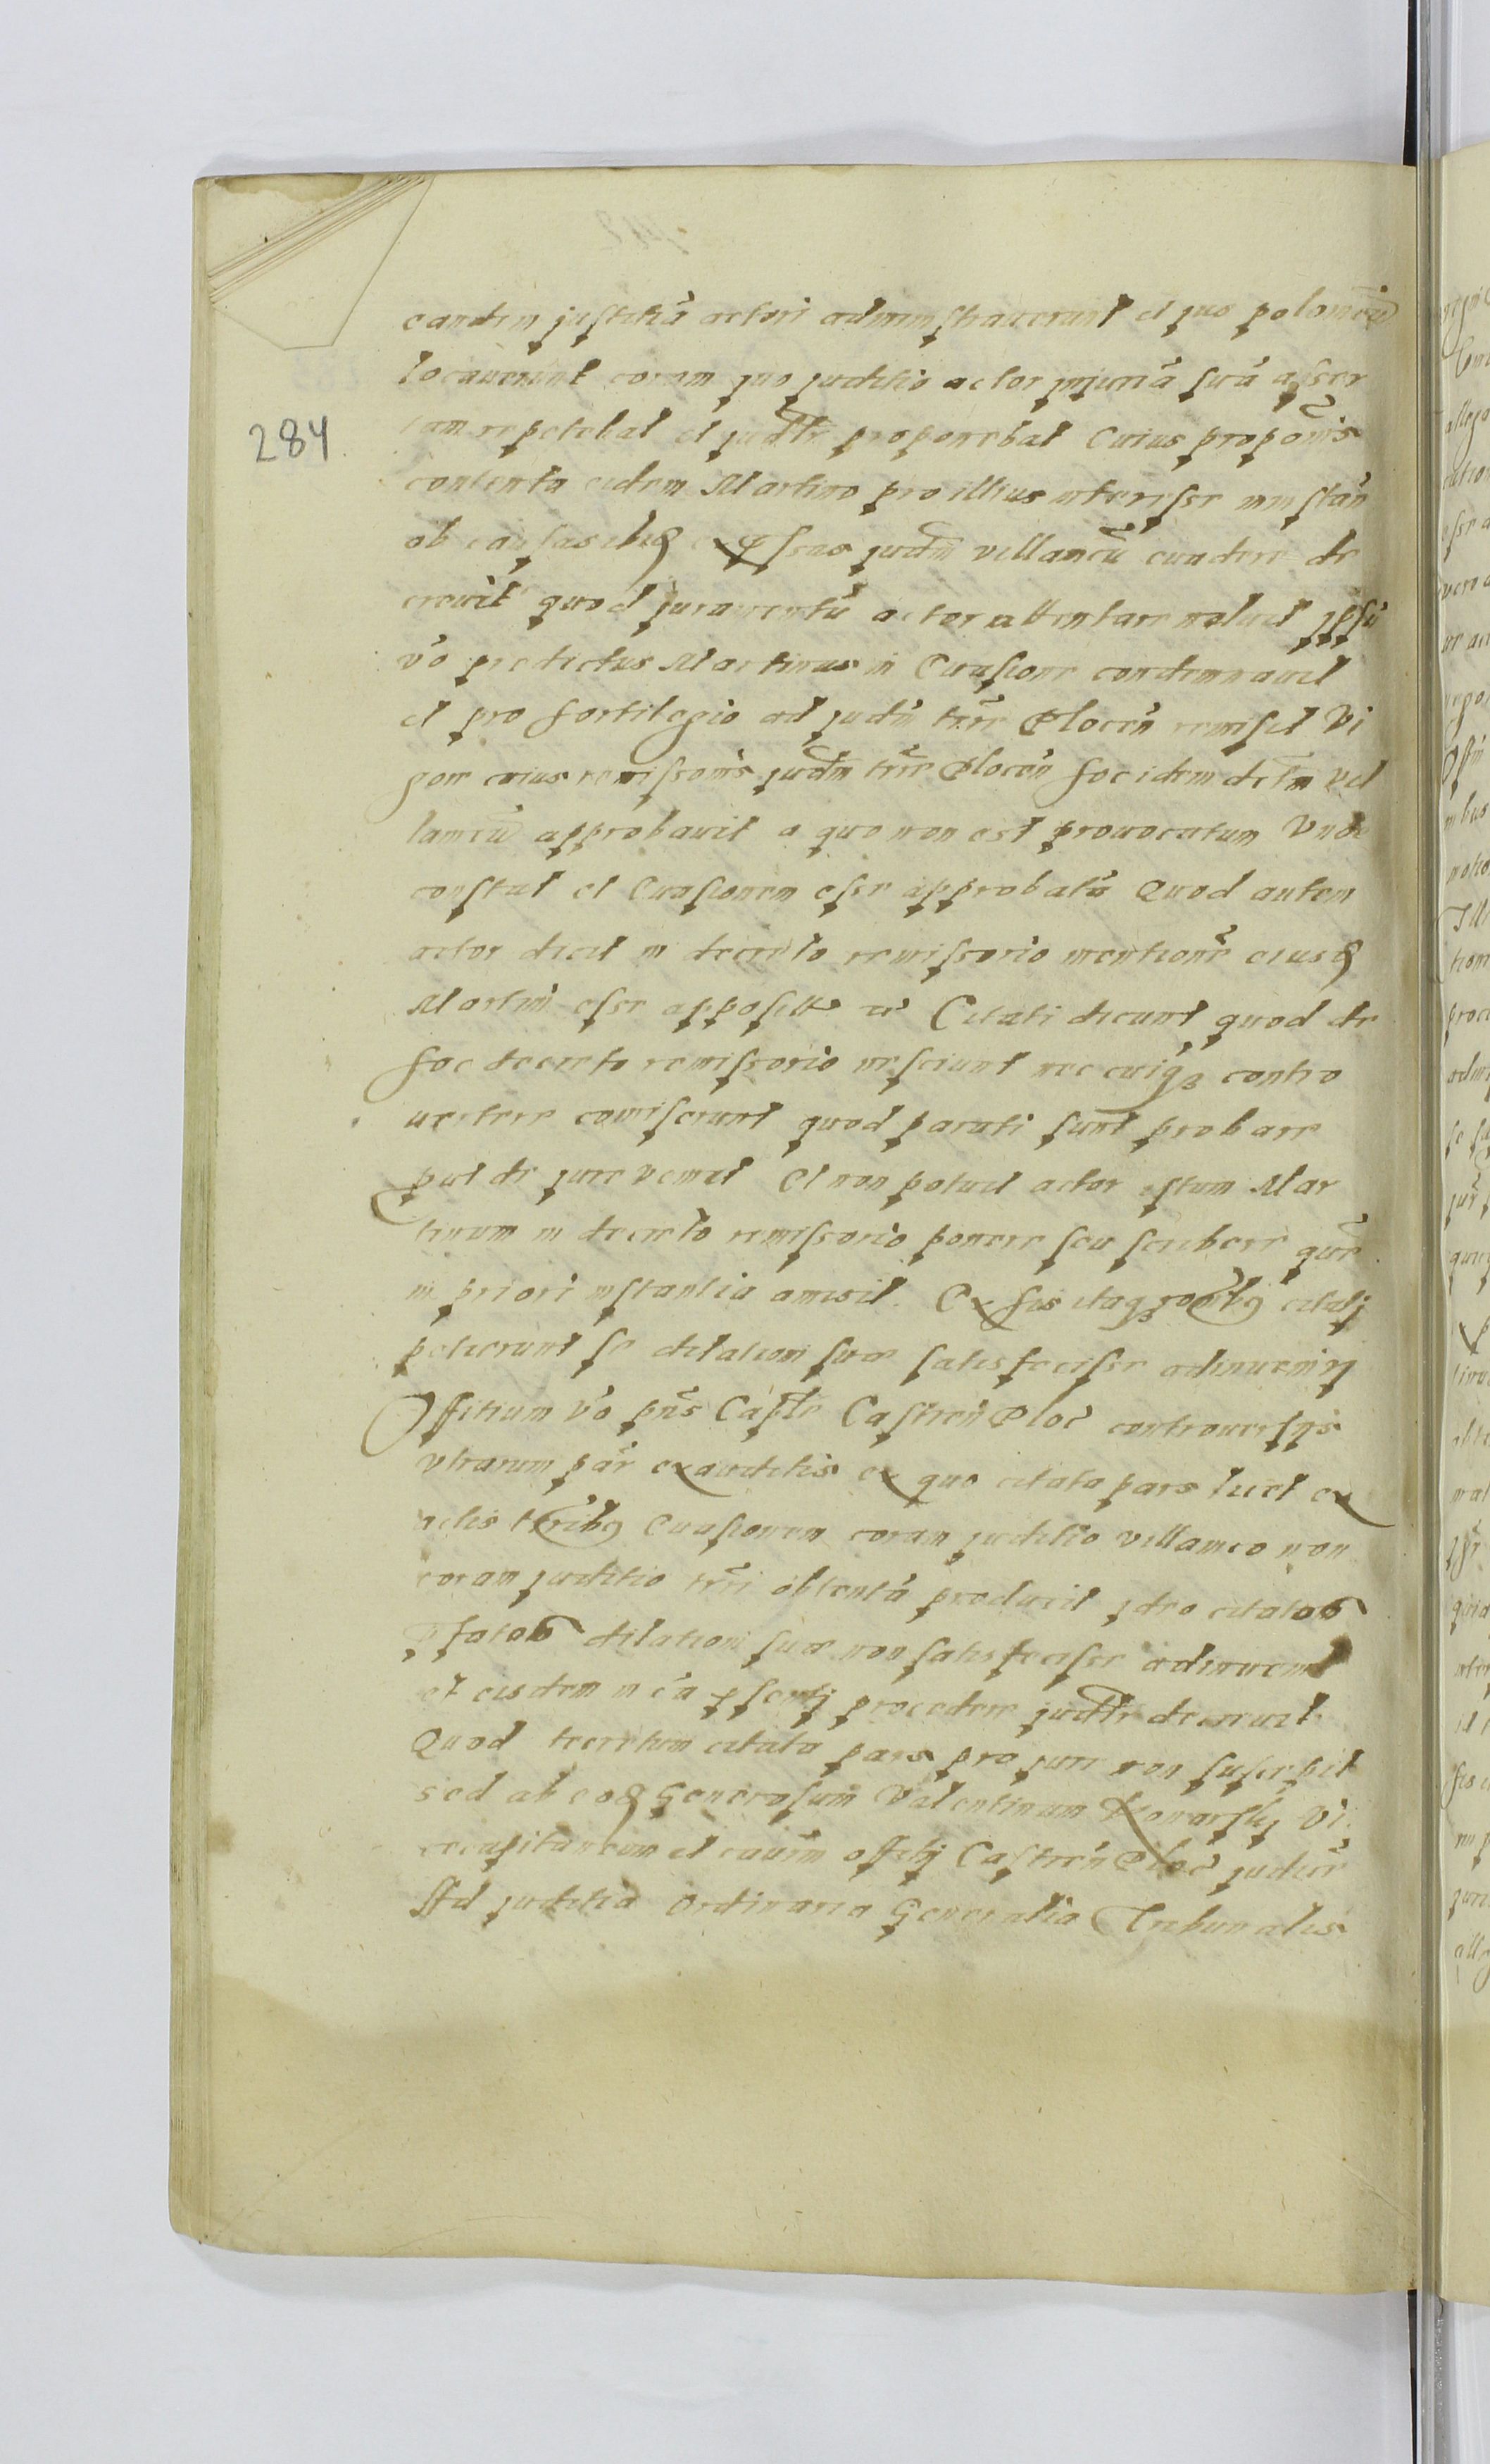 eandem justitiā actori administraverunt et jus polonicū
locaverunt coram quo juditio actor injuriā suā asser
tam repetebat et judtr proponebat Cuius propōnis
contenta eidem Martino pro illius interesse instān
ob causas ibid expssas judm villanicū evadere de
crevit quod juramentū actor attentare noluit ipsū
vo predictus Martinus in Evasione condemnavit
et pro sortilegio ad judm trre Plocen remisit Vi
gore cuius remissionis judm trre Plocen hoc idem dctm vil
lanicū approbavit a quo non est provocatum Unde
constat et Evasionem esse approbatā Quod autem
actor dicit in decreto remissorio mentione eiusd
Martini esse Citati dicunt quod de
hoc decreto remissorio nesciunt nec cuiq3 contro
vertere comiserunt quod parati sunt probare
put de jure venit Et non potuit actor istum Mar
tinum in decreto remissorio ponere seu scribere que
in priori instantia amisit. Ex his itaq3 rontbg citatj
petierunt se dilationi sue satisfecisse adinvenirj
Offitium vo pns Capte Castren Ploc controversijs
utrarum par exauditis ex quo citata pars licet ex
actis trribg Evasionem coram juditio villanico non
coram juditio trri obtentā producit jdeo citatos
pfatos dilationi sue non satisfecisse adinvenit
et eisdem in ca pscntj procedere judtr decrevit
Quod decretum citata pars pro jure non suscepit
sed ab eod Generosum Valentinum Vi
cecapitaneum et cauim offitij Castren Ploc judice
Ad juditia Ordinaria Generalia Tribunalis
284